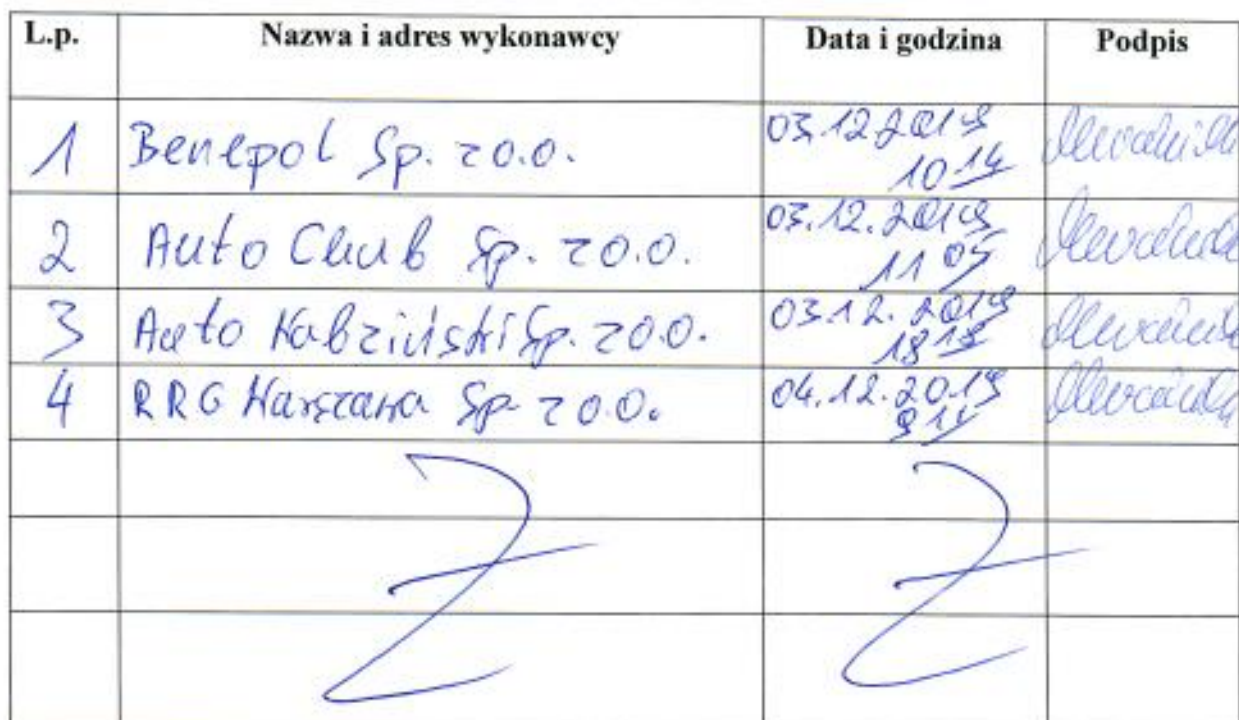 L.p. Nazwa i adres wykonawcy Data i godzina Podpis
1 Benepol Sp. z o.o. 03.12.2019 10 14
2 Auto Club Sp. z o.o. 03.12.2019 11 05
3 Auto Kabziński Sp. z o.o. 03.12.2019 18
4 RRG Warszawa Sp. z o.o. 04.12.2019